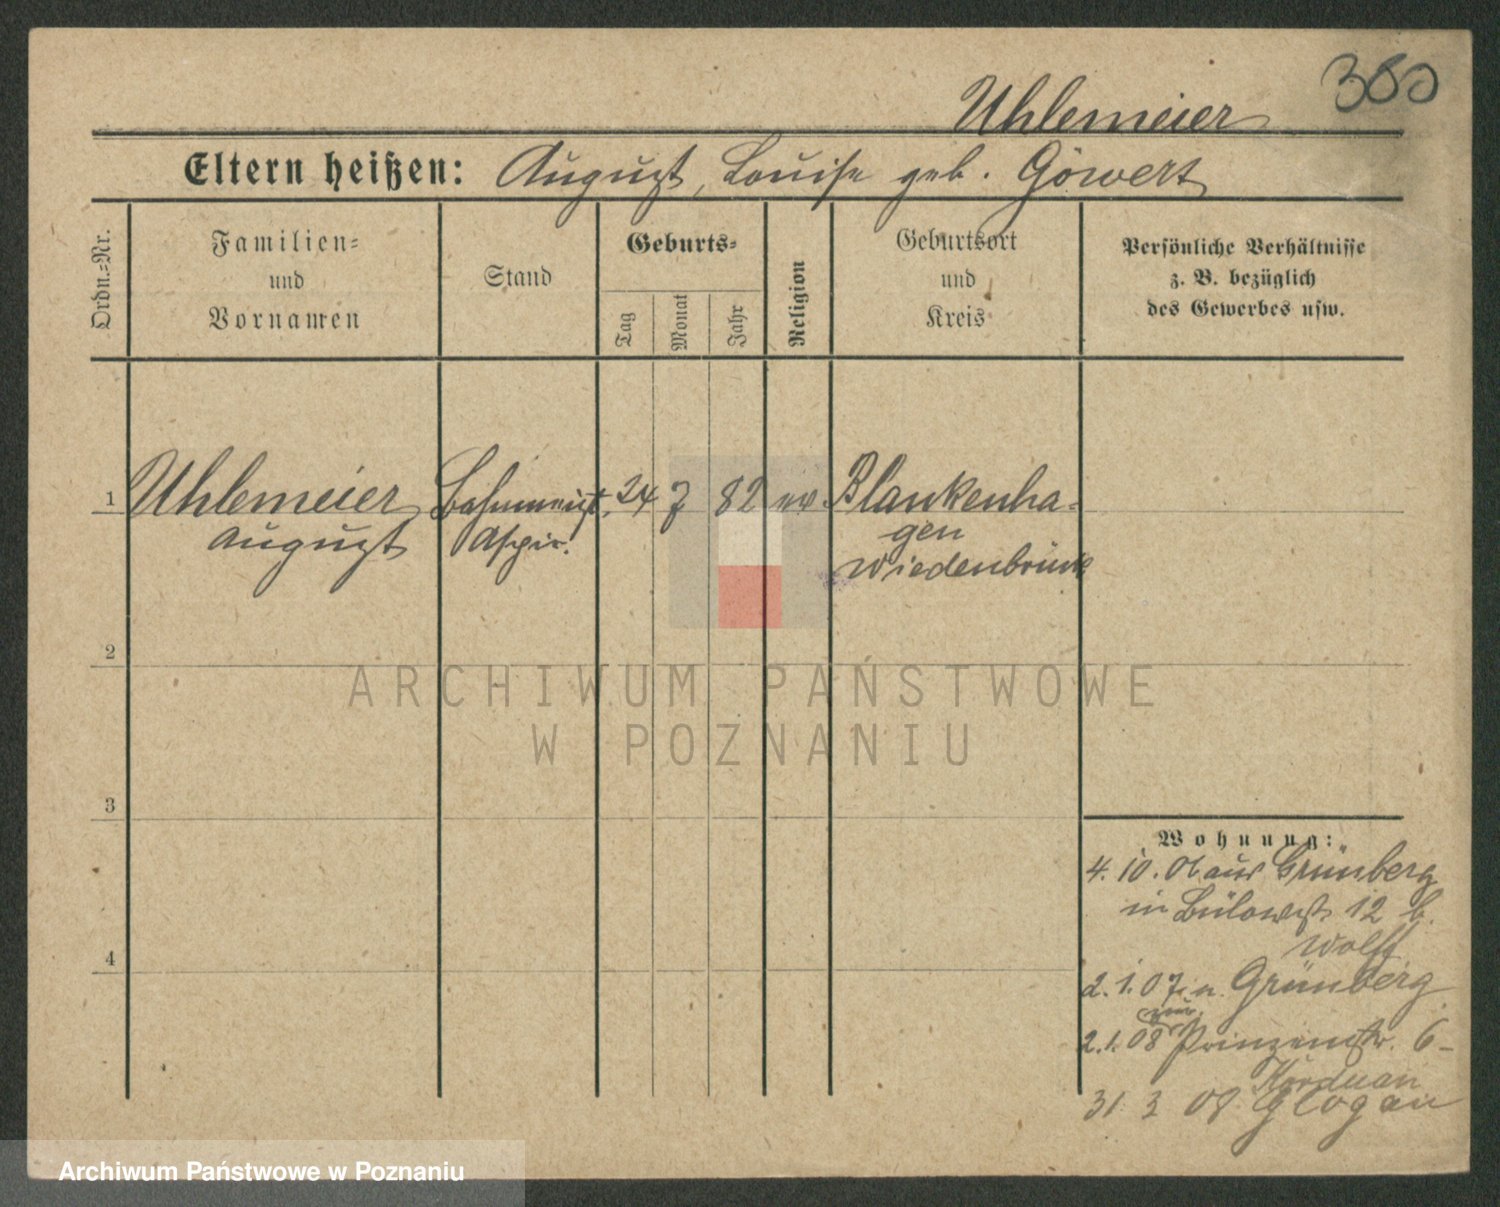 380
Uhlemeier
Eltern heißen: August, Louise geb. Göwert
Ordn.=Nr.
Familien=
und
Vornamen
Stand
Geburts=
Tag
Monat
Jahr
Religion
Geburtsort
und
Kreis
Persönliche Verhältnisse
z. B. bezüglich
des Gewerbes usw.
1 Uhlemeier Bahnmeist. 24 7 82 ev. Blankenha-
August Aspir. gen
Wiedenbrück
2
ARCHIWUM PAŃSTWOWE
W POZNANIU
3
Wohnung:
4. 10. 06 aus Grünberg
in Bülowstr 12 b.
Wolff
4
2. 1. 07 n. Grünberg
2. 1. 08 Prinzenstr. 6
Korduan
31. 3 08 Glogau
Archiwum Państwowe w Poznaniu